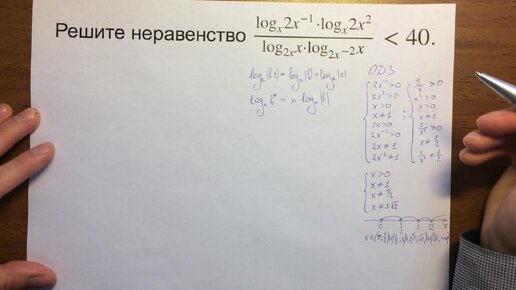 Решите неравенство (log_x 2x⁻¹ · log_x 2x²) / (log_{2x} x · log_{2x⁻²} x) < 40.
log_a(bc) = log_a|b| + log_a|c|
log_a bⁿ = n·log_a|b|
ОДЗ
2x⁻¹>0
2x²>0
x>0
x≠1
2x>0
2x⁻²>0
2x≠1
2x⁻²≠1
;
2/x >0
x²>0
x>0
x≠1
2/x² >0
x≠1/2
2/x² ≠1
x>0
x≠1
x≠1/2
x≠±√2
0 1/2 1 √2 x